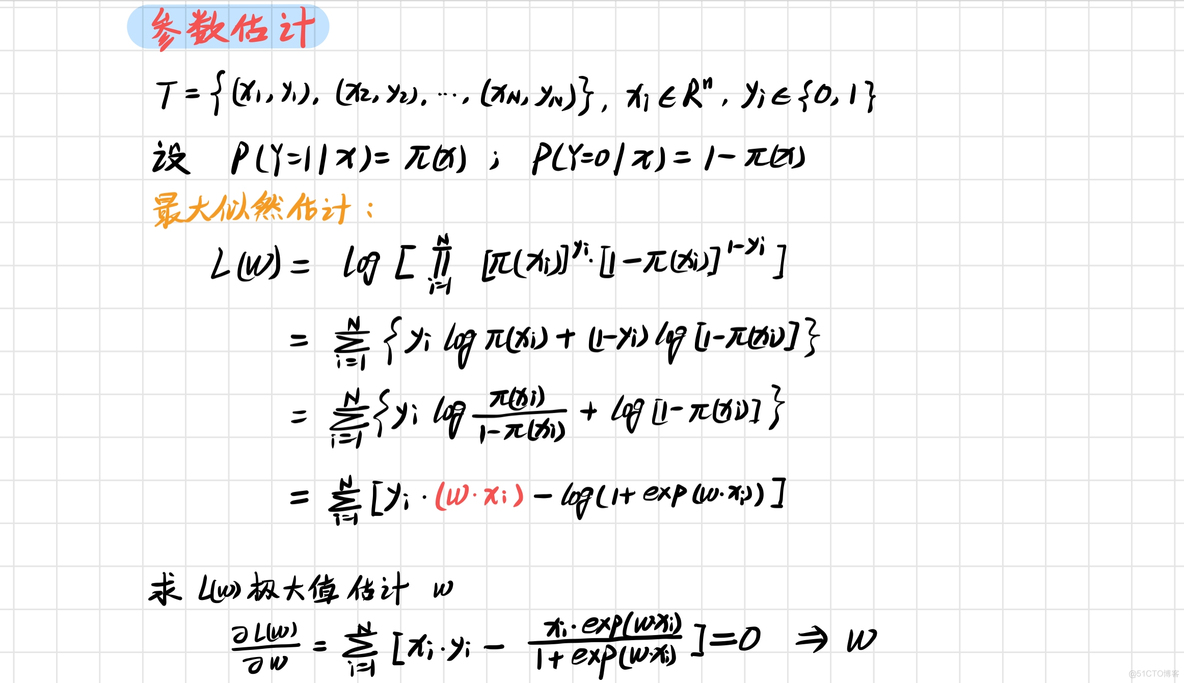 参数估计
T = {(x₁, y₁), (x₂, y₂), ⋯, (x_N, y_N)}, xᵢ ∈ Rⁿ, yᵢ ∈ {0, 1}
设 P(Y=1|x) = π(x) ; P(Y=0|x) = 1-π(x)
最大似然估计:
L(w) = log [ ∏_{i=1}^{N} [π(xᵢ)]^{yᵢ}·[1-π(xᵢ)]^{1-yᵢ} ]
= ∑_{i=1}^{N} {yᵢ log π(xᵢ) + (1-yᵢ) log [1-π(xᵢ)]}
= ∑_{i=1}^{N} {yᵢ log \frac{π(xᵢ)}{1-π(xᵢ)} + log [1-π(xᵢ)]}
= ∑_{i=1}^{N} [yᵢ·(w·xᵢ) - log(1+exp(w·xᵢ))]
求 L(w) 极大值估计 w
\frac{∂L(w)}{∂w} = ∑_{i=1}^{N} [xᵢ·yᵢ - \frac{xᵢ·exp(w·xᵢ)}{1+exp(w·xᵢ)}] = 0 ⇒ w
@51CTO博客